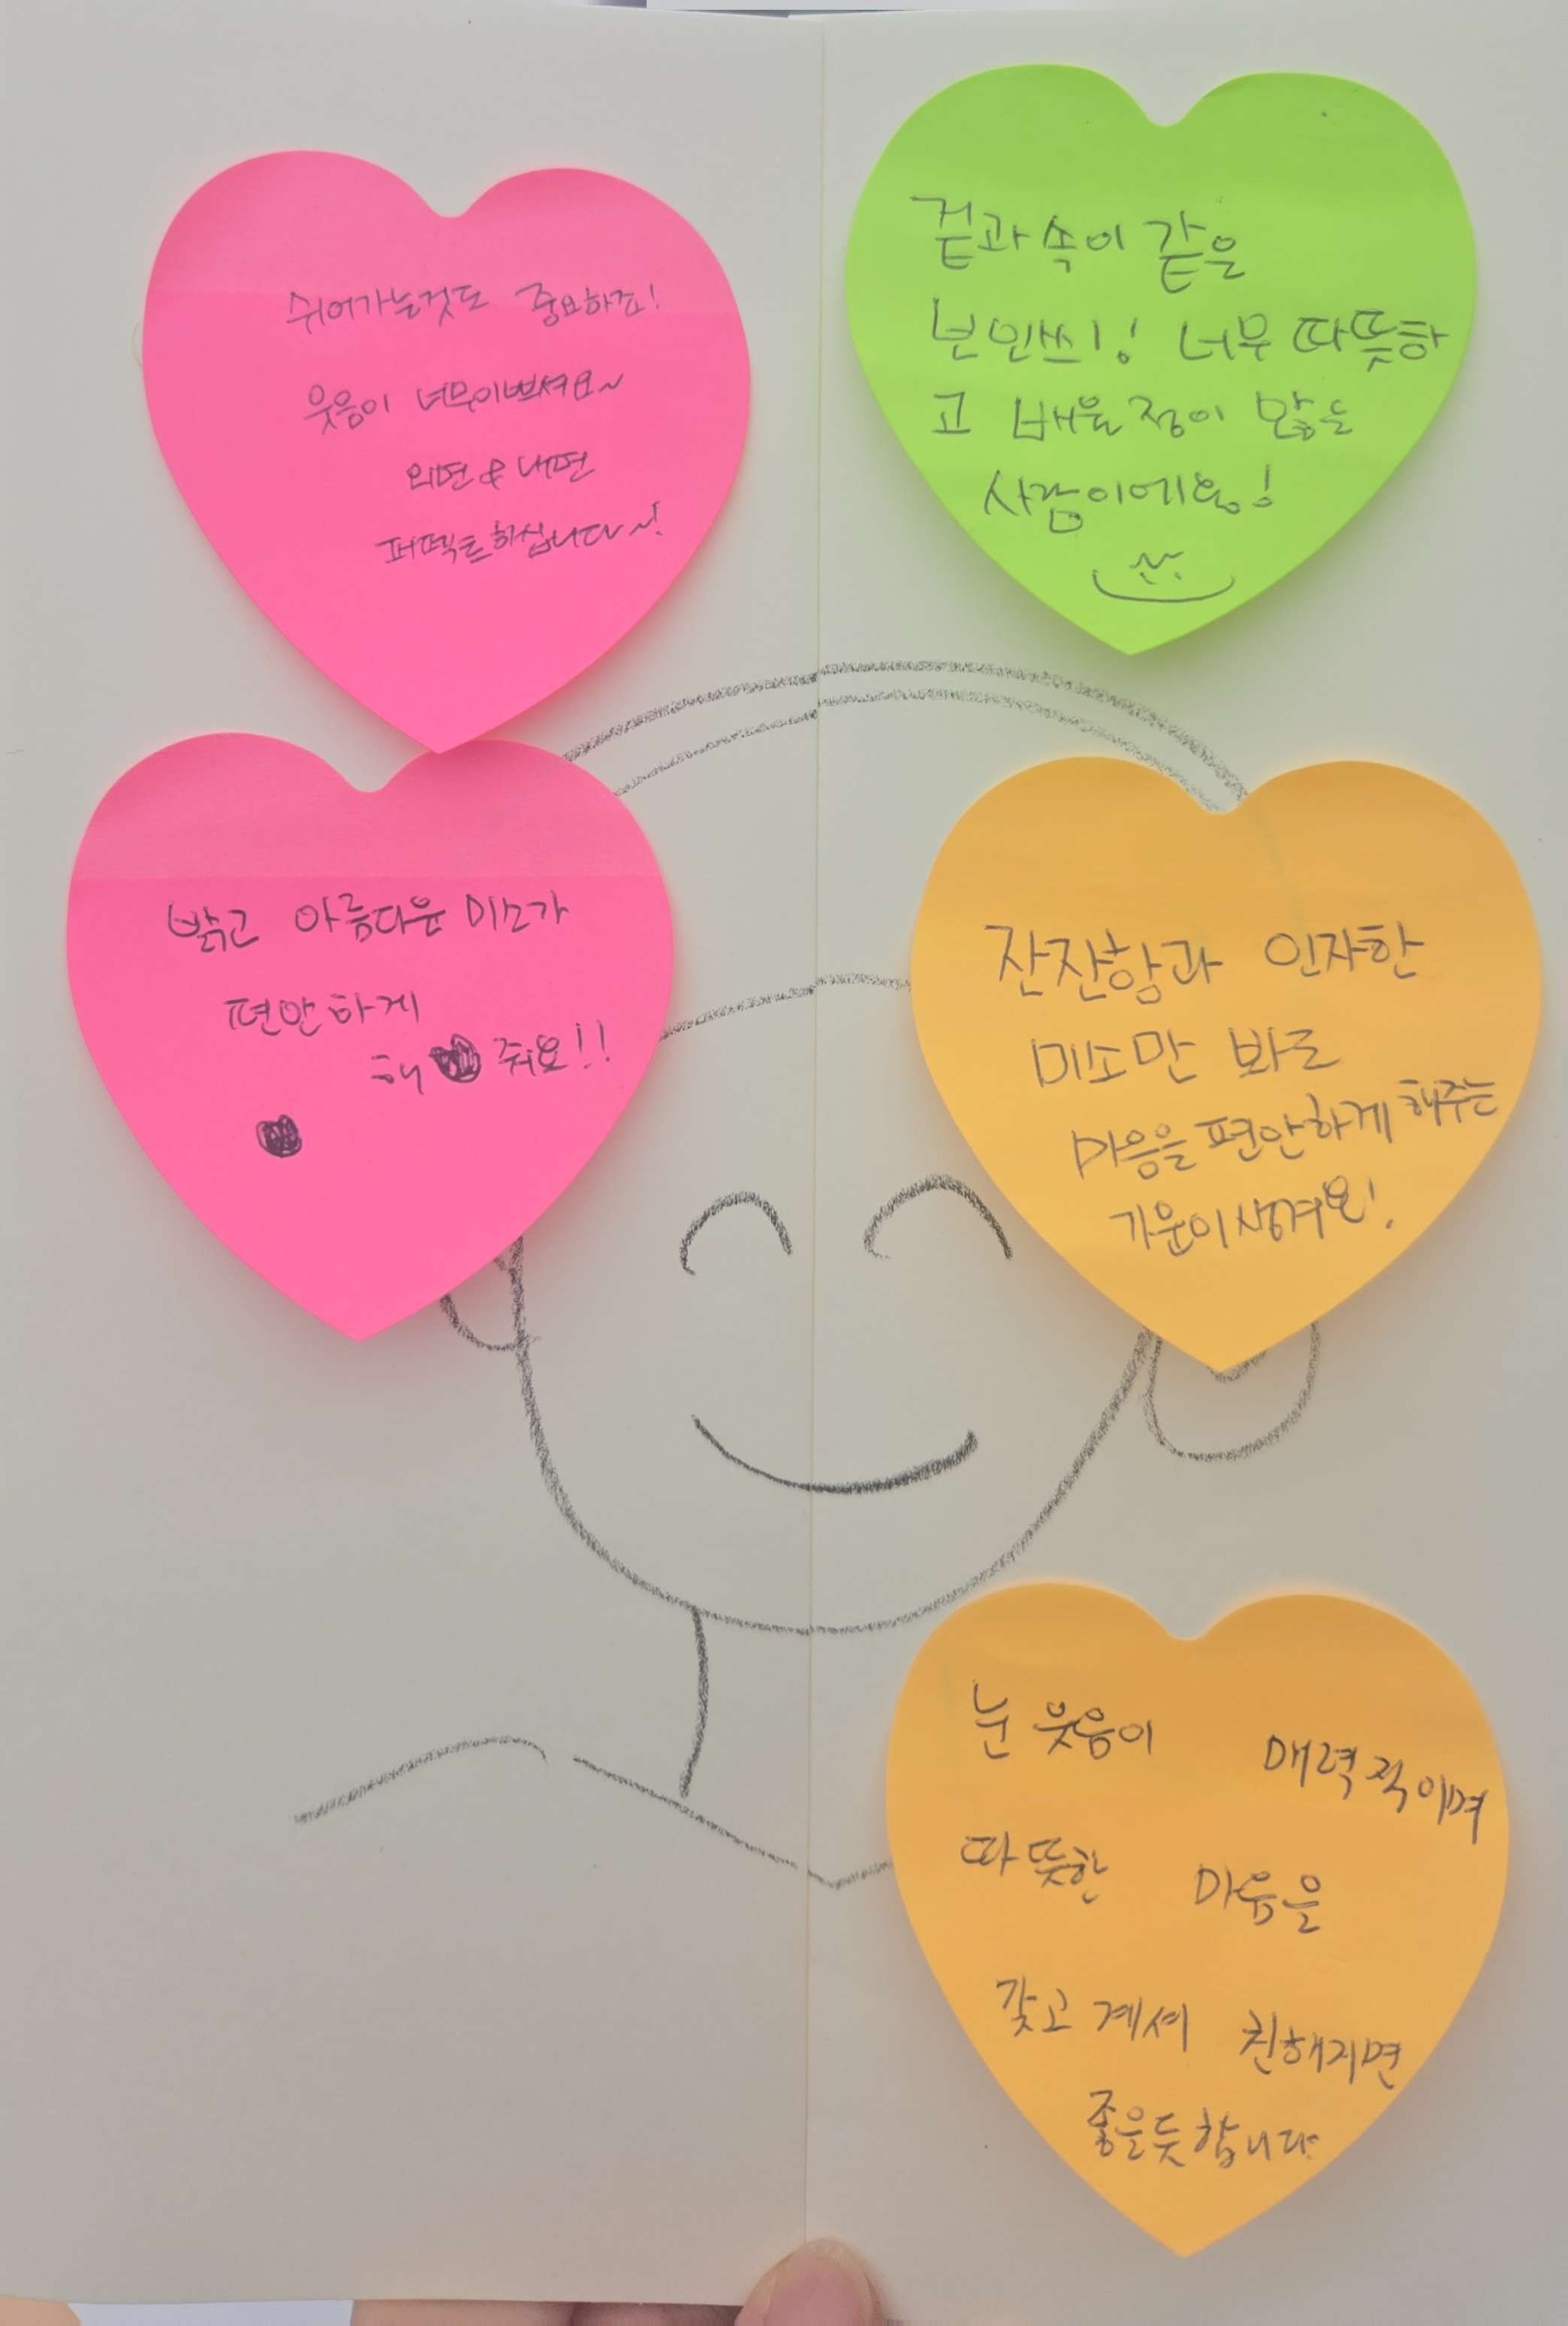 쉬어가는것도 중요하죠!
웃음이 너무이쁘셔요~
외면 & 내면
퍼펙트하십니다~!
겉과 속이 같은
너무 따뜻하
고 배울 점이 많은
사람이에요!
밝고 아름다운 미소가
편안하게
해 줘요!!
잔잔함과 인자한
미소만 봐도
마음을 편안하게 해주는
기운이 생겨요!
눈 웃음이 매력적이며
따뜻한 마음을
갖고 계셔 친해지면
좋을듯합니다